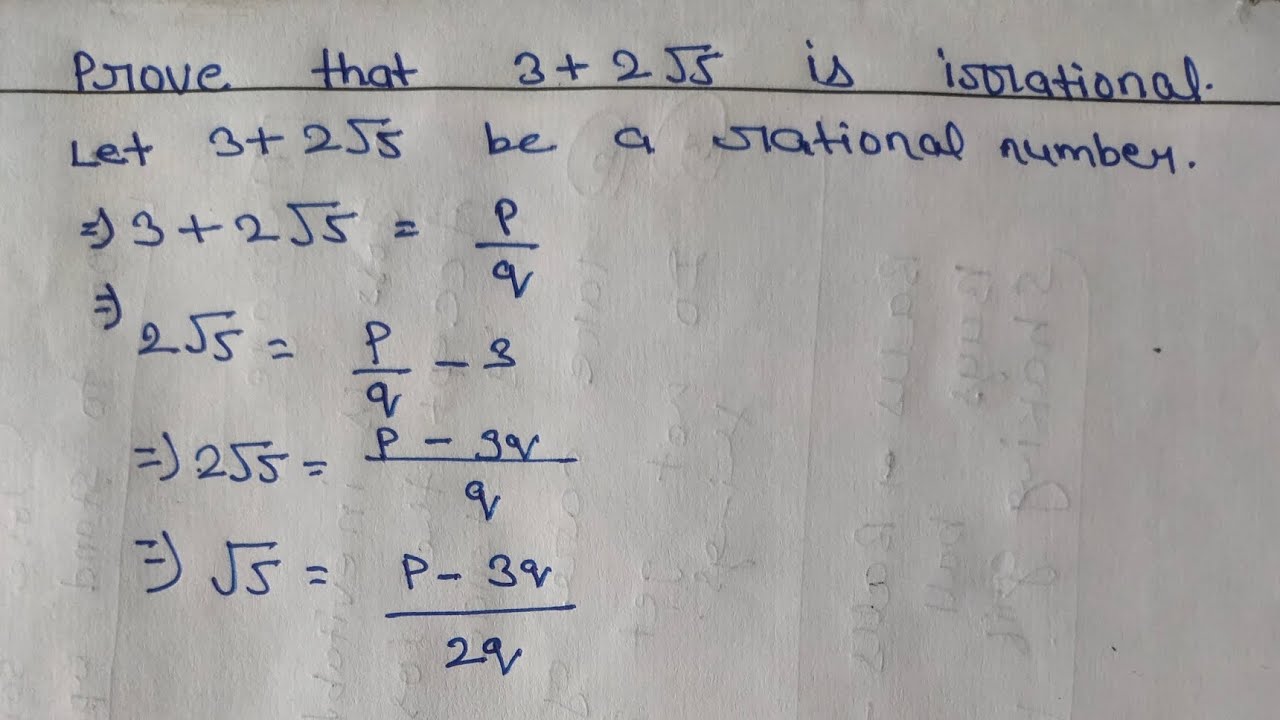 Prove that 3+2√5 is irrational.
Let 3+2√5 be a rational number.
⇒ 3+2√5 = p/q
⇒ 2√5 = p/q - 3
⇒ 2√5 = p - 3q / q
⇒ √5 = p - 3q / 2q